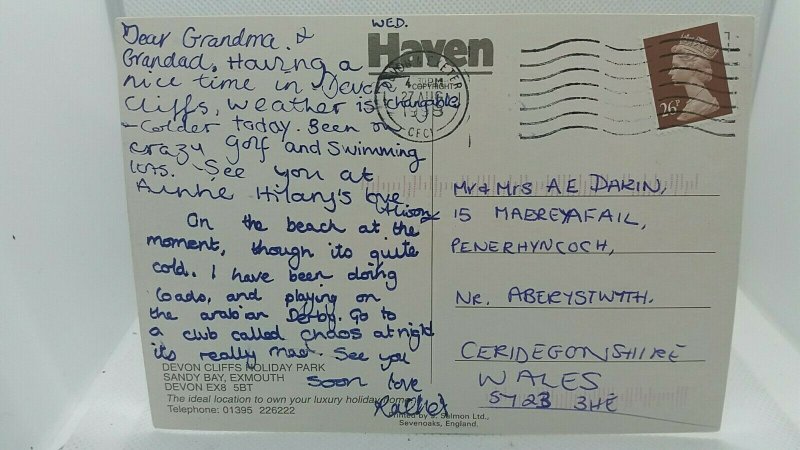 WED.
Dear Grandma &
Grandad, Having a
nice time in Devon
Cliffs, weather is changable
- Colder today. Been on
crazy golf and Swimming
lots. See you at
Auntie Hilary's love
Alison
On the beach at the
moment, though its quite
cold. I have been doing
loads, and playing on
the arabian Derby. Go to
a club called chaos at night
its really mad. See you
soon love
Rachel
DEVON CLIFFS HOLIDAY PARK
SANDY BAY, EXMOUTH
DEVON EX8 5BT
The ideal location to own your luxury holiday home
Telephone: 01395 226222
Haven
COPYRIGHT
EXETER
27 AUG
26P
Mr & Mrs A E DAKIN,
15 MAEREYAFAIL,
PENERHYNCOCH,
NR. ABERYSTWYTH.
CERIDEGONSHIRE
WALES
SY23 3HE
Printed by J. Salmon Ltd.,
Sevenoaks, England.